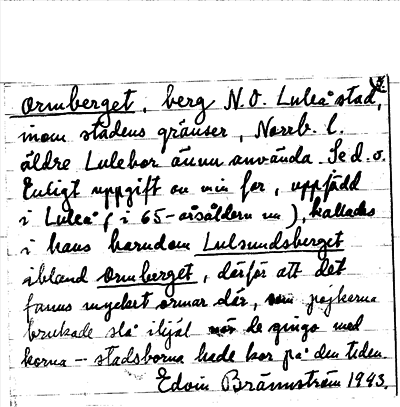 Ormberget, berg N.O. Luleå stad,
inom stadens gränser, Norrb. l.
äldre Lulebor ännu använda. Se d. o.
Enligt uppgift av min far, uppfödd
i Luleå (i 65-årsåldern nu), kallades
i hans barndom Lulsundsberget
ibland Ormberget, därför att det
fanns mycket ormar där, som pojkarna
brukade slå ihjäl när de gingo med
korna – stadsborna hade kor på den tiden.
Edvin Brännström 1943.